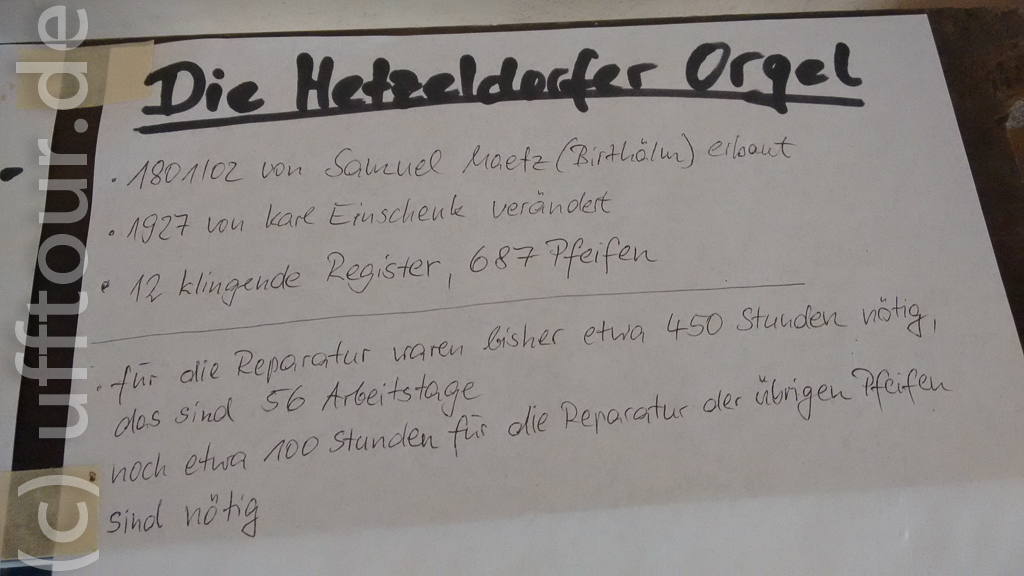 Die Hetzeldorfer Orgel
· 1801/02 von Samuel Maetz (Birthälm) erbaut
· 1927 von Karl Einschenk verändert
· 12 klingende Register, 687 Pfeifen
· für die Reparatur waren bisher etwa 450 Stunden nötig,
das sind 56 Arbeitstage
· noch etwa 100 Stunden für die Reparatur der übrigen Pfeifen
sind nötig
(c) uffftour.de